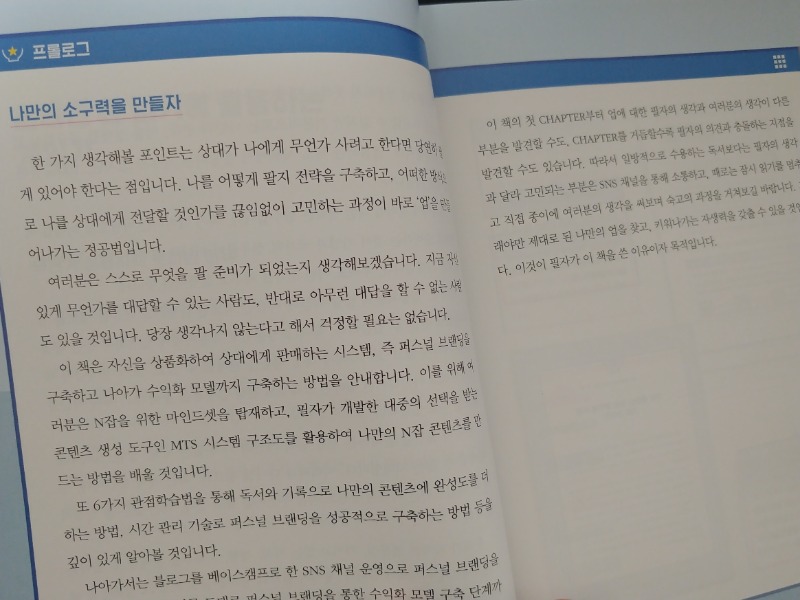 프롤로그
나만의 소구력을 만들자
한 가지 생각해볼 포인트는 상대가 나에게 무언가 사려고 한다면
게 있어야 한다는 점입니다. 나를 어떻게 팔지 전략을 구축하고, 어떠한
로 나를 상대에게 전달할 것인가를 끊임없이 고민하는 과정이 바로 '업'을
어나가는 정공법입니다.
여러분은 스스로 무엇을 팔 준비가 되었는지 생각해보겠습니다. 지금
있게 무언가를 대답할 수 있는 사람도, 반대로 아무런 대답을 할 수 없는
도 있을 것입니다. 당장 생각나지 않는다고 해서 걱정할 필요는 없습니다.
이 책은 자신을 상품화하여 상대에게 판매하는 시스템, 즉 퍼스널 브랜딩을
구축하고 나아가 수익화 모델까지 구축하는 방법을 안내합니다. 이를 위해 여
러분은 N잡을 위한 마인드셋을 탑재하고, 필자가 개발한 대중의 선택을 받는
콘텐츠 생성 도구인 MTS 시스템 구조도를 활용하여 나만의 N잡 콘텐츠를 만
드는 방법을 배울 것입니다.
또 6가지 관점학습법을 통해 독서와 기록으로 나만의 콘텐츠에 완성도를 더
하는 방법, 시간 관리 기술로 퍼스널 브랜딩을 성공적으로 구축하는 방법 등을
깊이 있게 알아볼 것입니다.
나아가서는 블로그를 베이스캠프로 한 SNS 채널 운영으로 퍼스널 브랜딩을
퍼스널 브랜딩을 통한 수익화 모델 구축 단계까
이 책의 첫 CHAPTER부터 업에 대한 필자의 생각과 여러분의 생각이 다른
부분을 발견할 수도, CHAPTER를 거듭할수록 필자의 의견과 충돌하는 지점을
발견할 수도 있습니다. 따라서 일방적으로 수용하는 독서보다는 필자의 생각
과 달라 고민되는 부분은 SNS 채널을 통해 소통하고, 때로는 잠시 읽기를 멈추
고 직접 종이에 여러분의 생각을 써보며 숙고의 과정을 거쳐보길 바랍니다.
래야만 제대로 된 나만의 업을 찾고, 키워나가는 자생력을 갖출 수 있을 것입
다. 이것이 필자가 이 책을 쓴 이유이자 목적입니다.